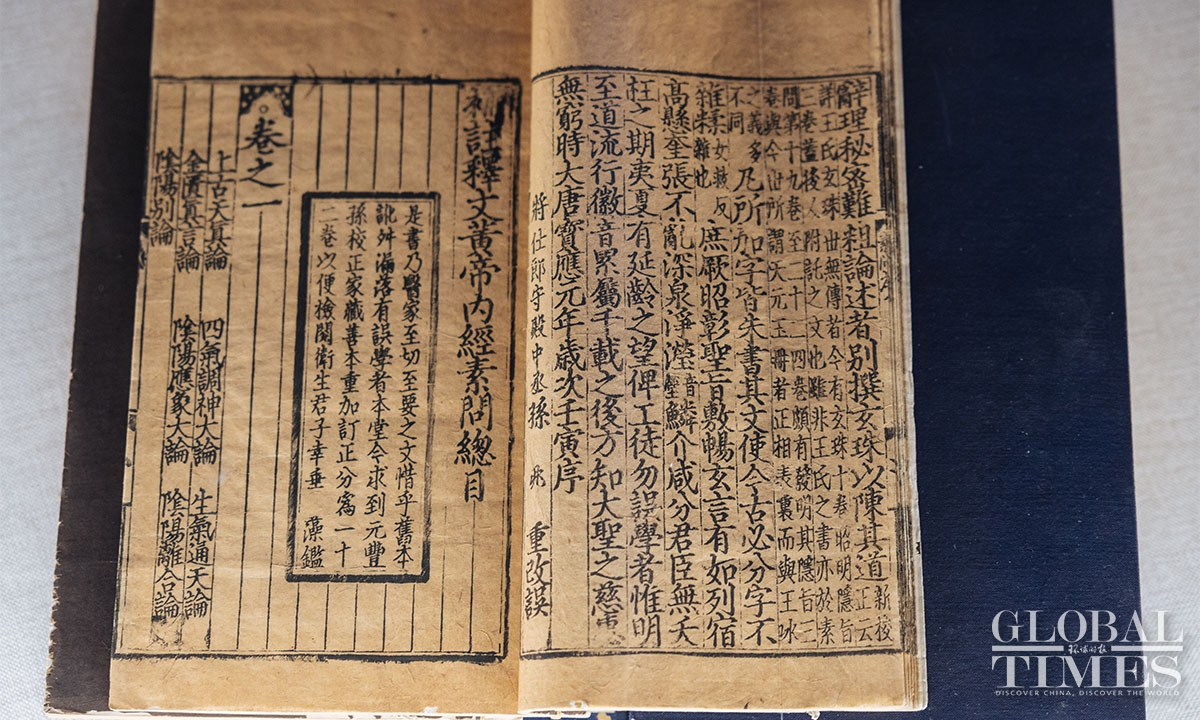 辭理秘密難粗論述者別撰玄珠以陳其道新校正云
詳王氏玄珠世無傳者今有玄珠十卷昭明隱旨
三卷蓋後人附託之文也雖非王氏之書亦於素
問第十九卷至二十二四卷頗有發明其隱旨三
卷與今世所謂天元玉冊者正相表裏而與王冰
之義多不同乃所加字皆朱書其文使今古必分字不
雜糅女救反糅雜也庶厥昭彰聖旨敷暢玄言有如列宿
高懸奎張不亂深泉淨瀅音瑩鱗介咸分君臣無夭
枉之期夷夏有延齡之望俾工徒勿誤學者惟明
至道流行徽音累屬千載之後方知大聖之慈惠
無窮時大唐寶應元年歲次壬寅序
將仕郎守殿中丞孫 兆 重改誤
補註釋文黃帝內經素問總目
是書乃醫家至切至要之文惜乎舊本
訛舛漏落有誤學者本堂今求到元豐
孫校正家藏善本重加訂正分為一十
二卷以便檢閱衛生君子幸垂 藻鑑
卷之一
上古天真論 四氣調神大論 生氣通天論
金匱真言論 陰陽應象大論 陰陽離合論
陰陽別論
GLOBAL
環球時報
TIMES
DISCOVER CHINA, DISCOVER THE WORLD